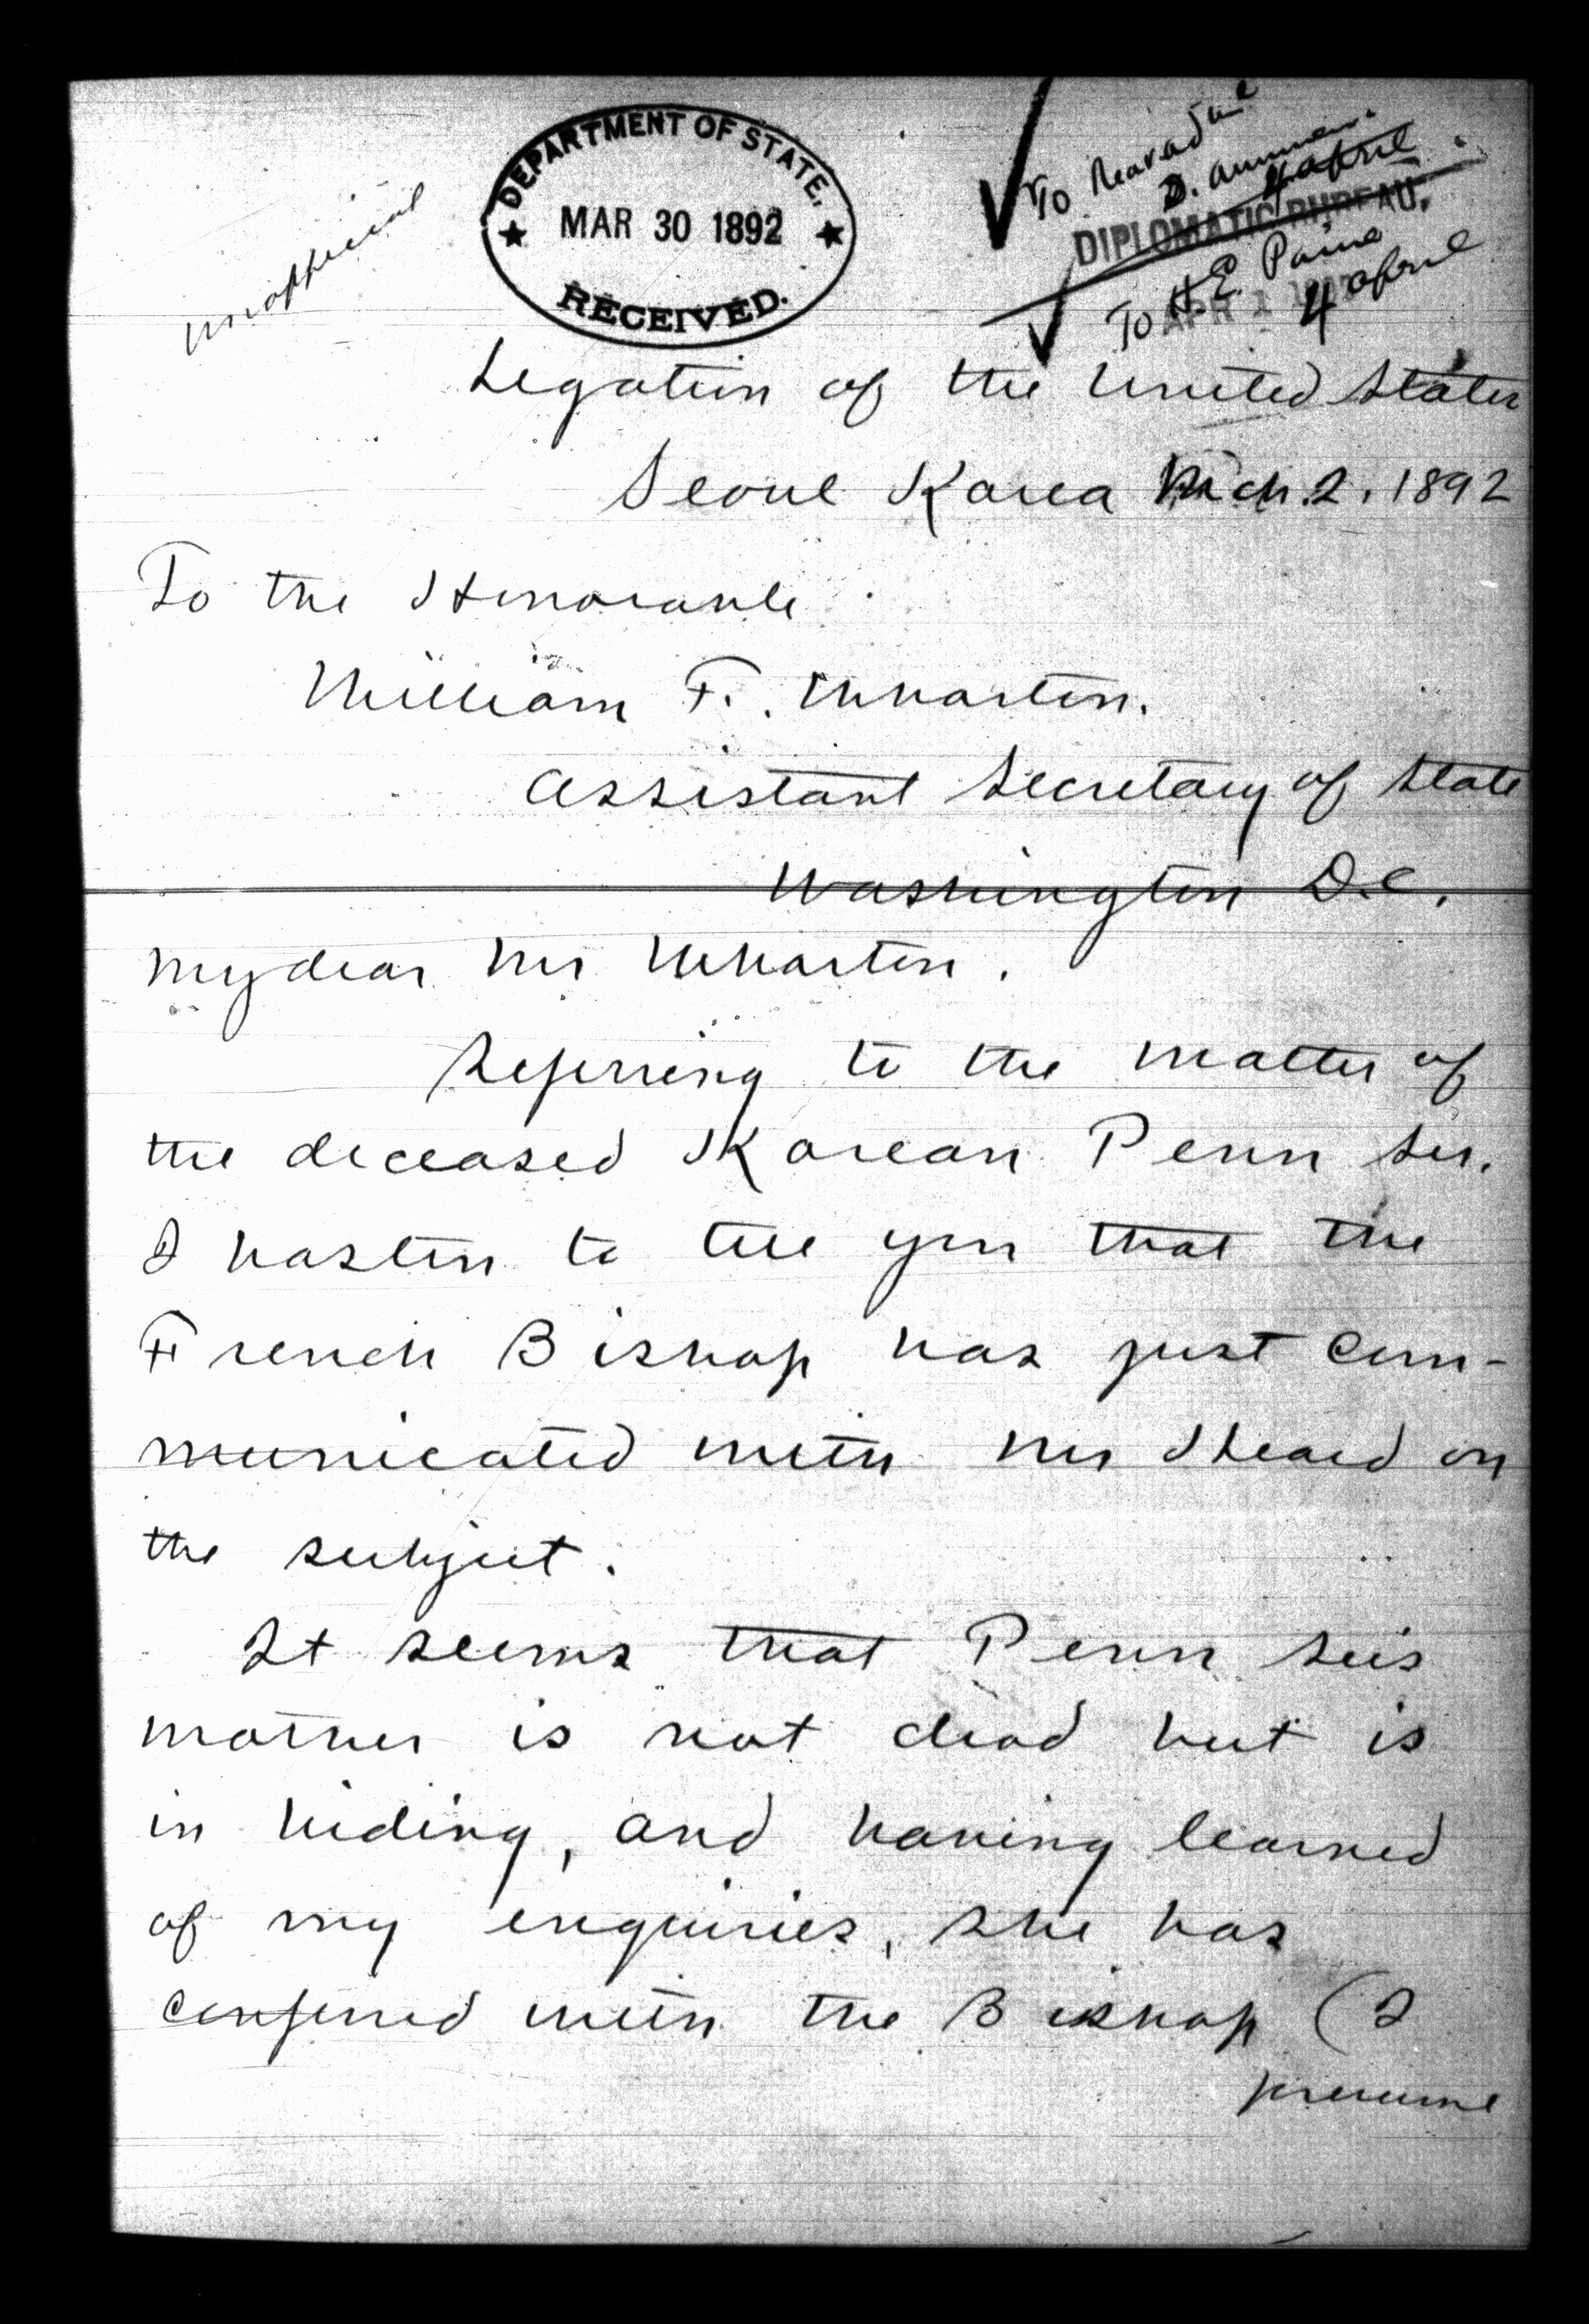 Unofficial
DEPARTMENT OF STATE.
MAR 30 1892
RECEIVED.
To Rear Adml
D. Ammen.
4 April
DIPLOMATIC BUREAU.
To H. E. Paine
4 April
APR 1
Legation of the United States
Seoul Korea Mch. 2. 1892
To the Honorable
William F. Wharton.
Assistant Secretary of State
Washington D.C.
My dear Mr Wharton.
Referring to the matter of
the deceased Korean Penn Su.
I hasten to tell you that the
French Bishop has just com-
municated with Mr Heard on
the subject.
It seems that Penn Su's
mother is not dead but is
in hiding, and having learned
of my enquiries, she has
conferred with the Bishop (I
presume